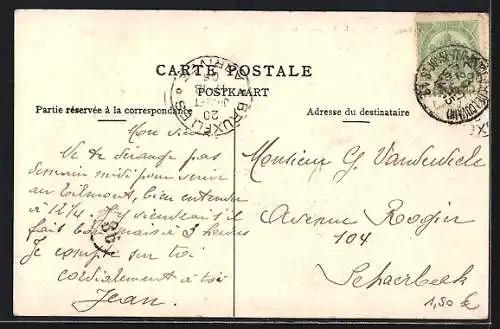 CARTE POSTALE
POSTKAART
Partie réservée à la correspondance
Adresse du destinataire
BRUXELLES
20
Mon vieux
Ne te dérange pas
demain midi pour venir
au Tilmont, bien entendu
à 12¼. J'y viendrai s'il
fait beau mais à 3 heures
Je compte sur toi
cordialement à toi
Jean.
Monsieur G. Vandevielle
Avenue Rogier
104
Schaerbeek
1,50 €